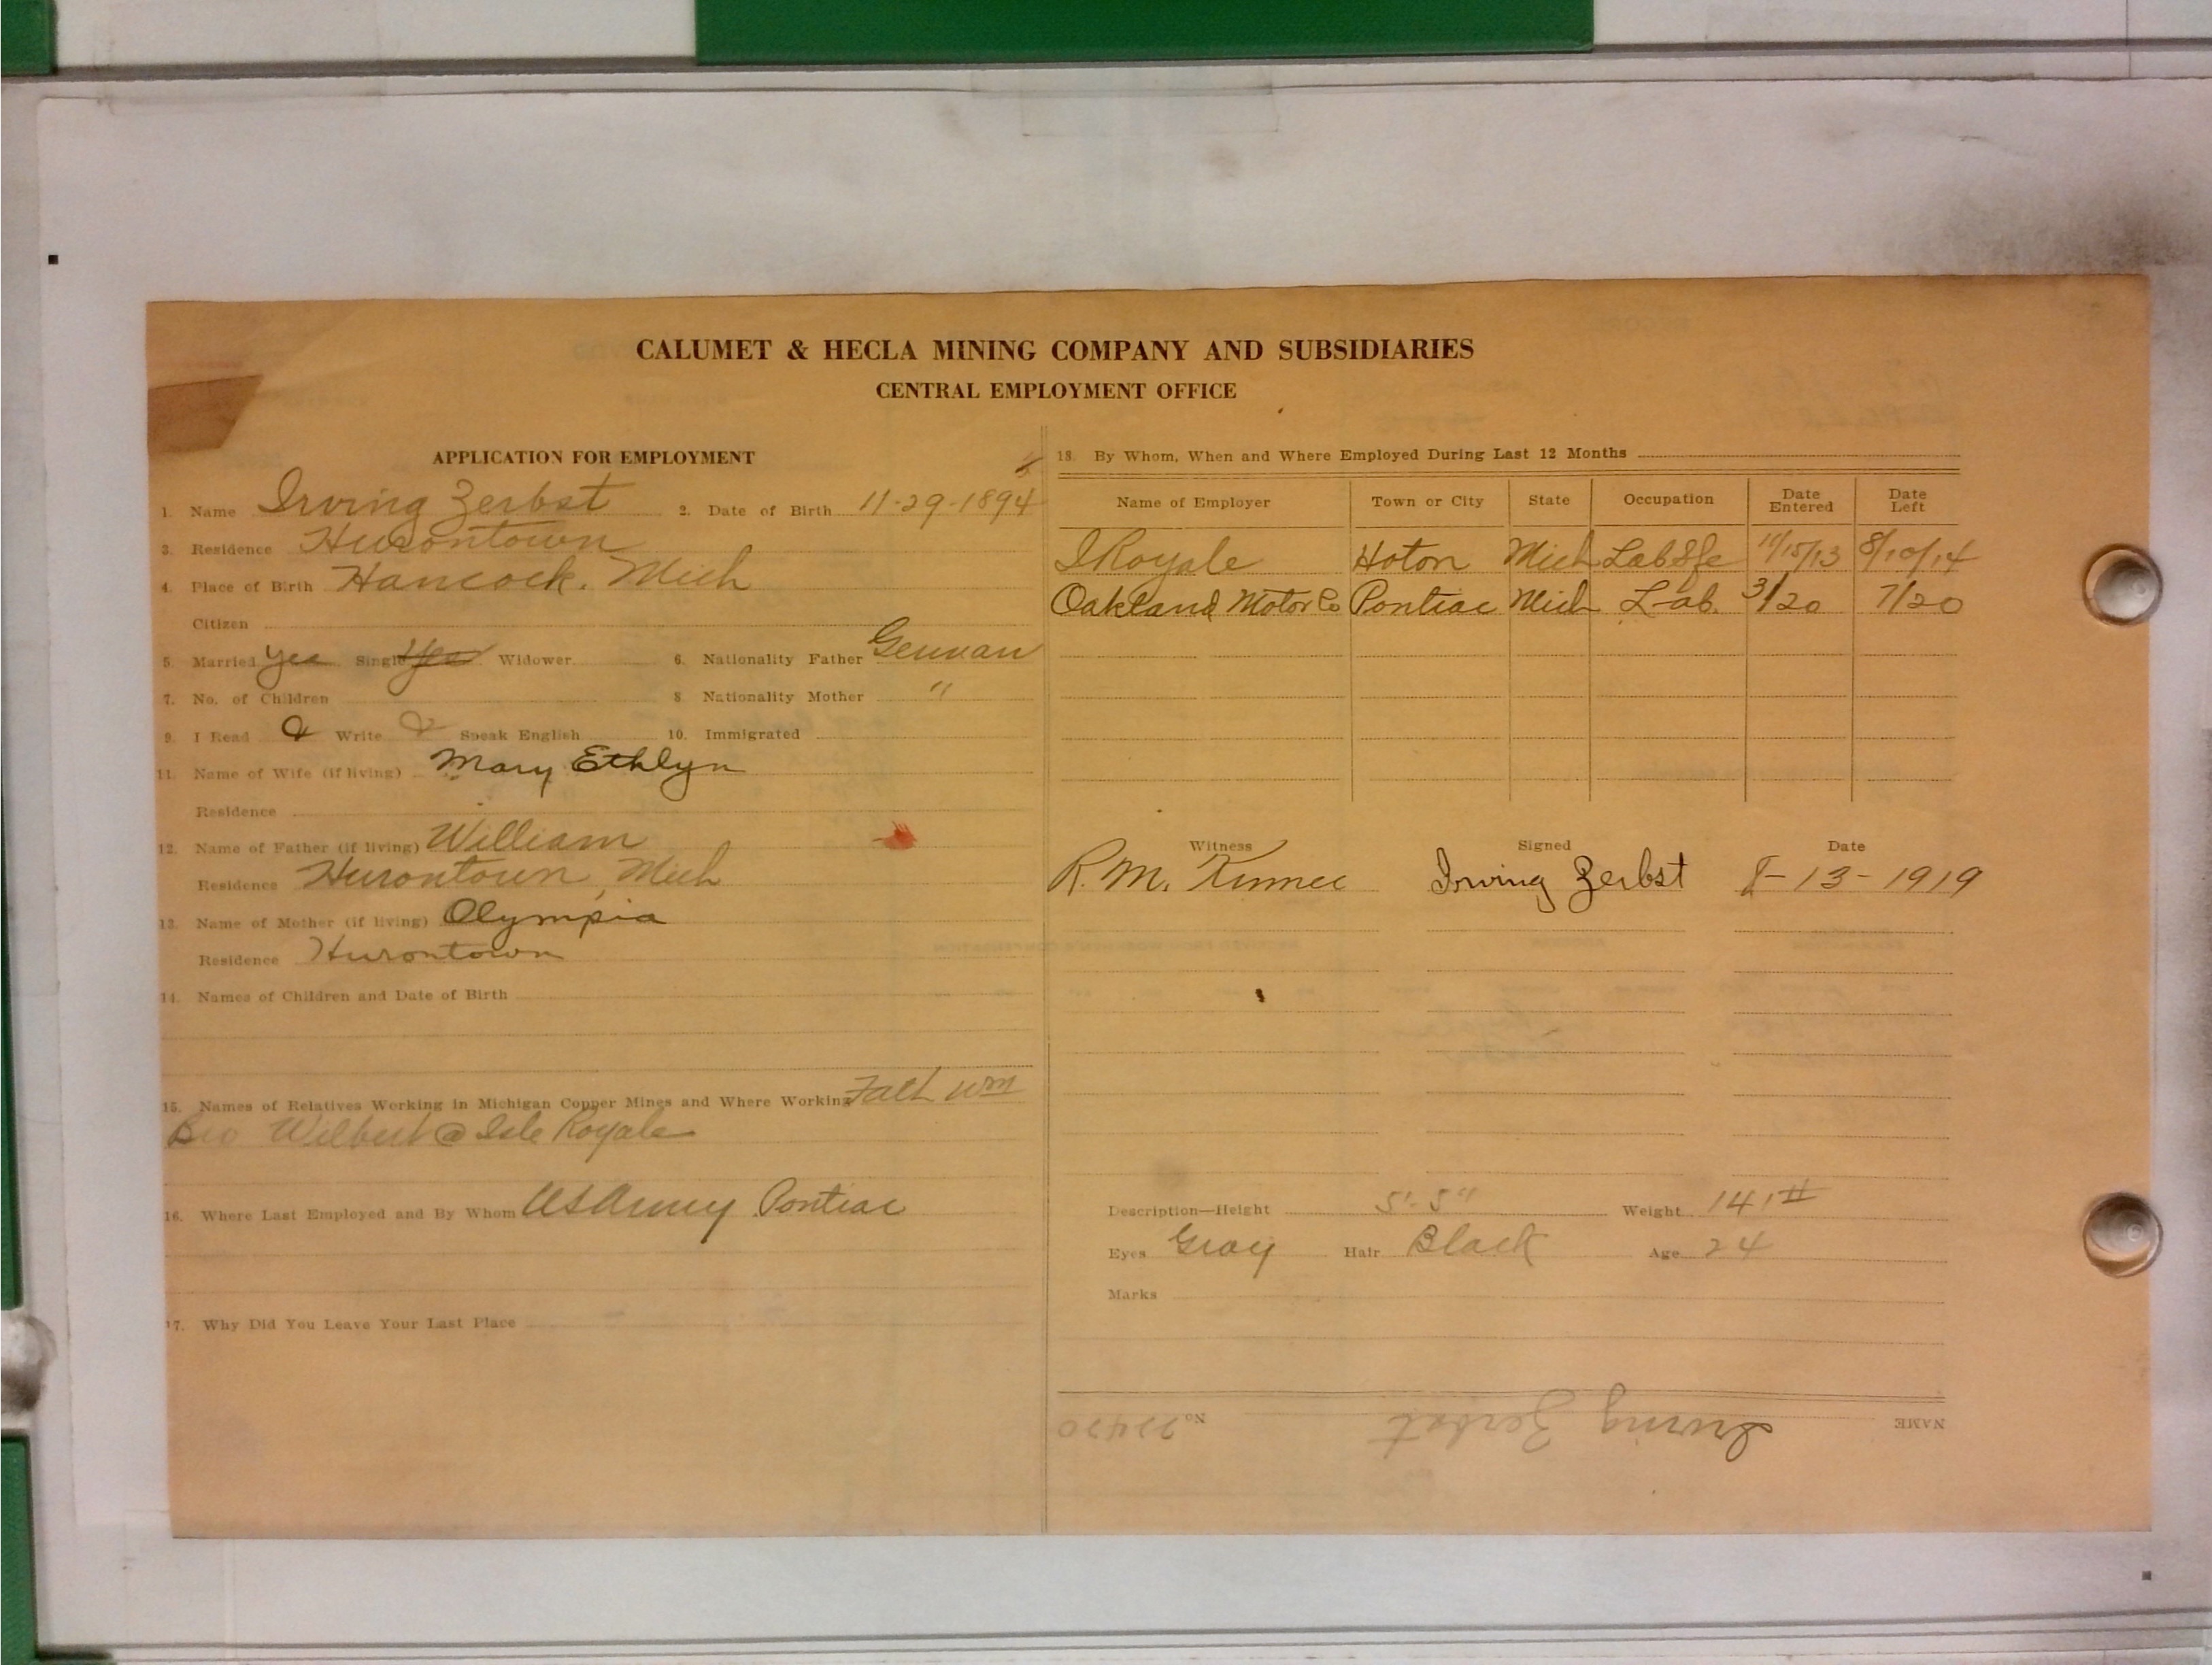 CALUMET & HECLA MINING COMPANY AND SUBSIDIARIES
CENTRAL EMPLOYMENT OFFICE
APPLICATION FOR EMPLOYMENT
1. Name Irving Zerbst 2. Date of Birth 11-29-1894
3. Residence Hurontown
4. Place of Birth Hancock, Mich
Citizen
5. Married yes Single Yes Widower 6. Nationality Father German
7. No. of Children 8 Nationality Mother "
9. I Read Write Speak English 10. Immigrated
11. Name of Wife (if living) Mary Ethlyn
Residence
12. Name of Father (if living) William
Residence Hurontown, Mich
13. Name of Mother (if living) Olympia
Residence Hurontown
14. Names of Children and Date of Birth
15. Names of Relatives Working in Michigan Copper Mines and Where Working Fath Wm
Bro Wilbert @ Isle Royale
16. Where Last Employed and By Whom US Army Pontiac
17. Why Did You Leave Your Last Place
18. By Whom, When and Where Employed During Last 12 Months
Name of Employer Town or City State Occupation Date Entered Date Left
I Royale Hoton Mich Lab 8/10/14
Oakland Motor Co Pontiac Mich Lab. 3/20 7/20
Witness Signed Date
R. M. Irving Zerbst 8-13-1919
Description—Height 5'-5" Weight 141#
Eyes Gray Hair Black Age 24
Marks
NAME Irving Zerbst No. 22420